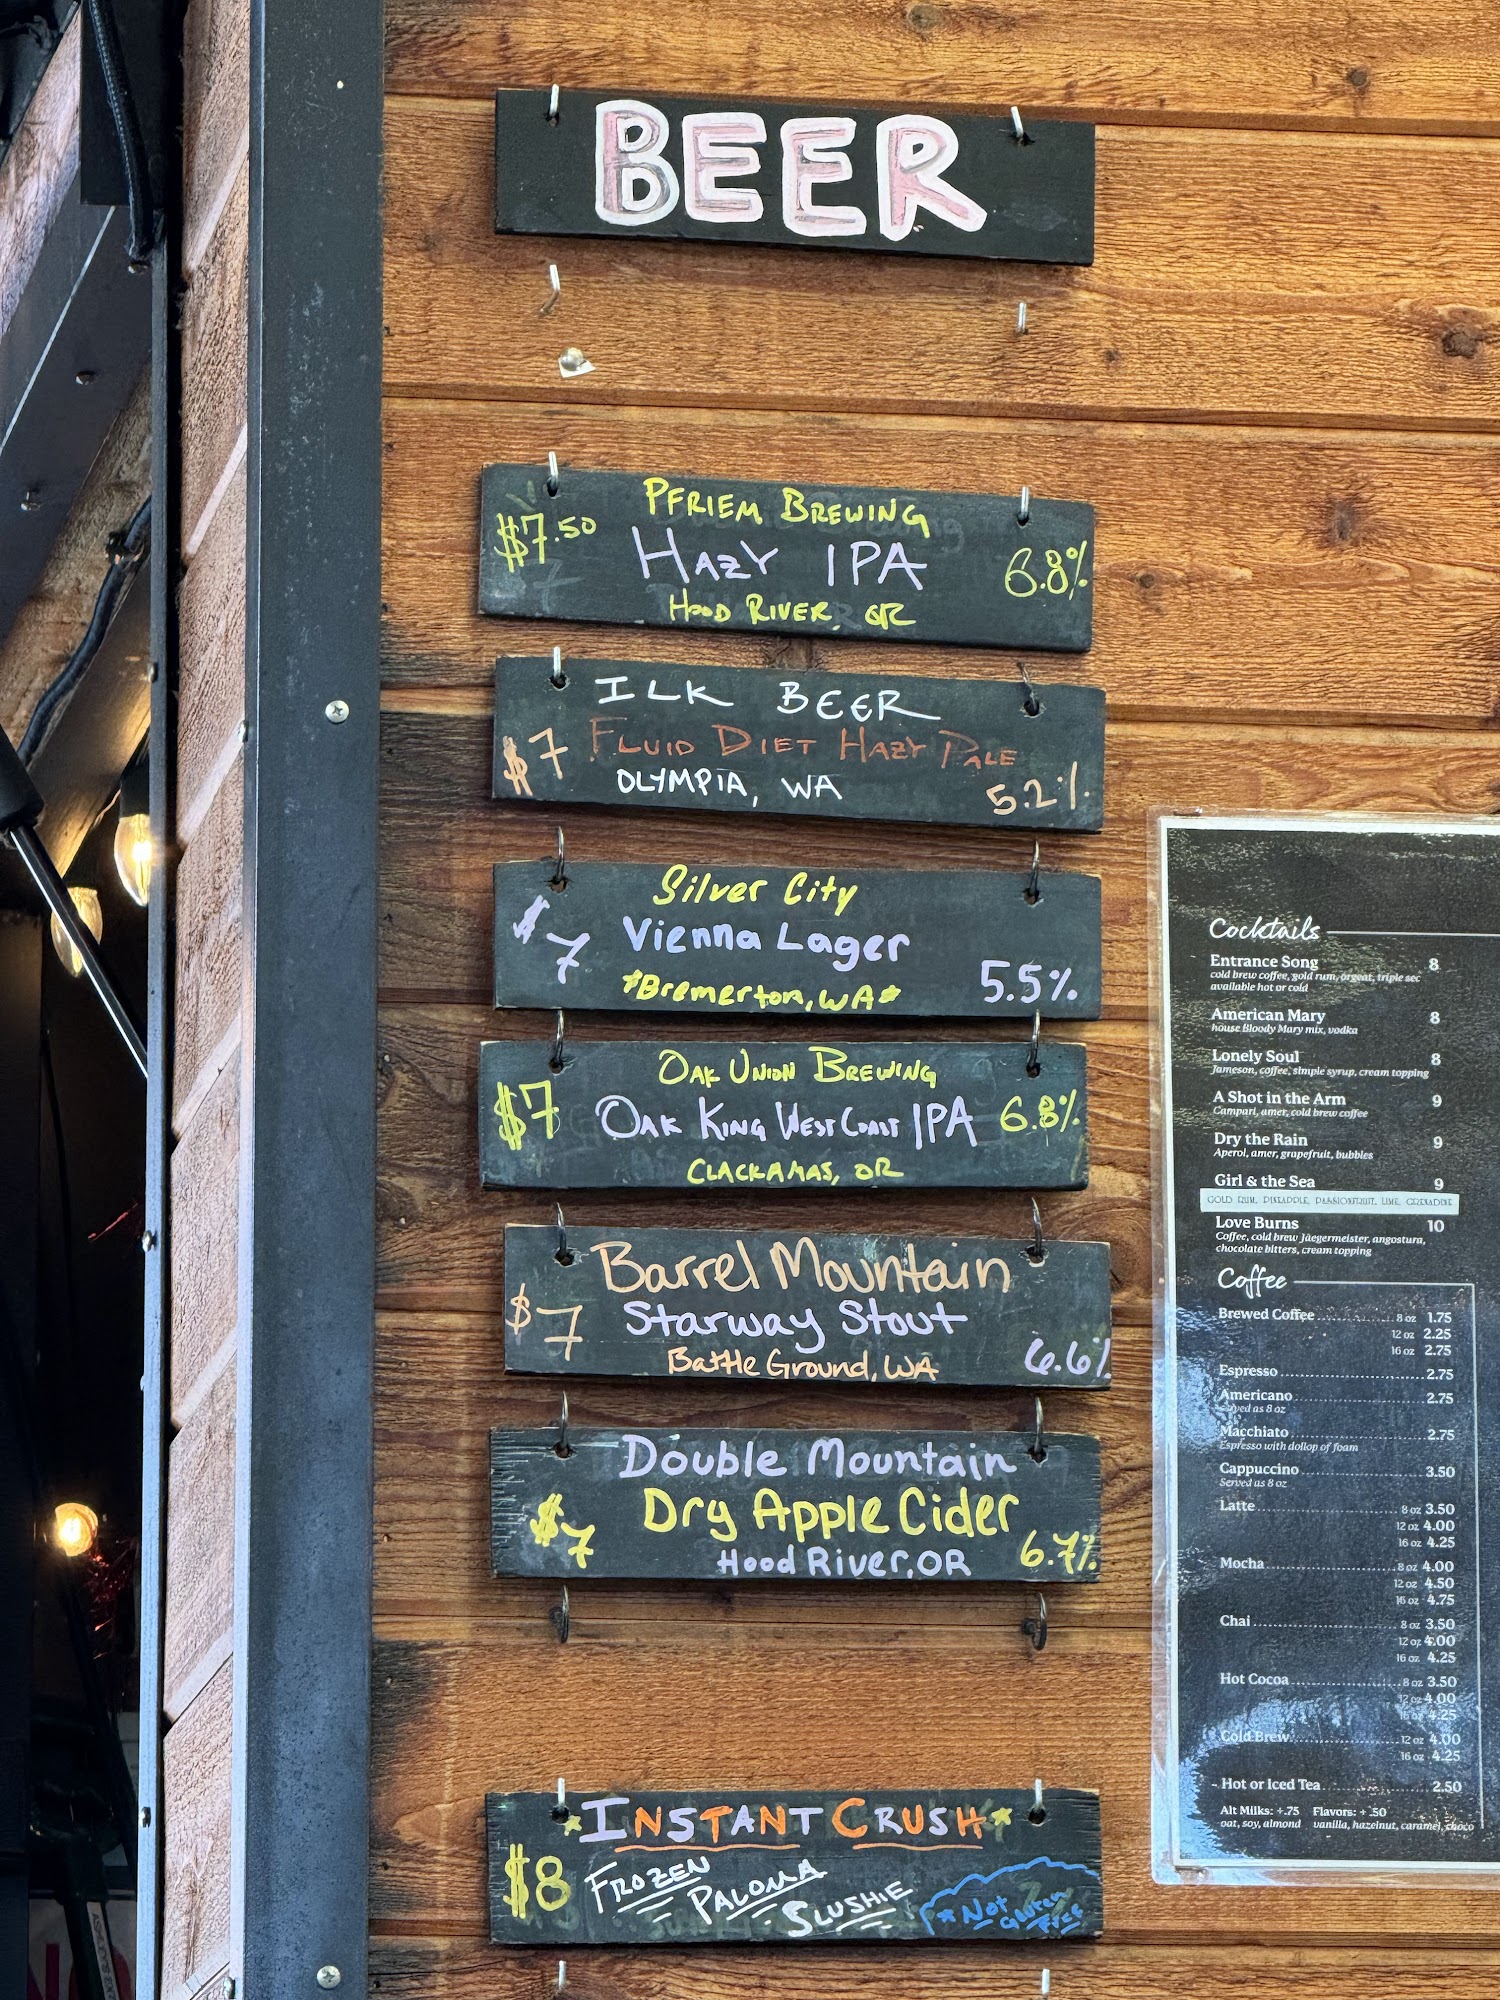 BEER
PFRIEM BREWING
$7.50
HAZY IPA
6.8%
HOOD RIVER, OR
ILK BEER
$7
FLUID DIET HAZY PALE
OLYMPIA, WA
5.2%
Silver City
$7
Vienna Lager
*Bremerton, WA*
5.5%
OAK UNION BREWING
$7
OAK KING WEST COAST IPA
6.8%
CLACKAMAS, OR
Barrel Mountain
$7
Starway Stout
Battle Ground, WA
6.6%
Double Mountain
Dry Apple Cider
$7
Hood River, OR
6.7%
INSTANT CRUSH
$8
FROZEN
PALOMA
SLUSHIE
*Not
Gluten
Free
Cocktails
Entrance Song 8
cold brew coffee, gold rum, orgeat, triple sec
available hot or cold
American Mary 8
house Bloody Mary mix, vodka
Lonely Soul 8
Jameson, coffee, simple syrup, cream topping
A Shot in the Arm 9
Campari, amer, cold brew coffee
Dry the Rain 9
Aperol, amer, grapefruit, bubbles
Girl & the Sea 9
GOLD RUM, PINEAPPLE, PASSIONFRUIT, LIME, GRENADINE
Love Burns 10
Coffee, cold brew Jäegermeister, angostura,
chocolate bitters, cream topping
Coffee
Brewed Coffee 8 oz 1.75
12 oz 2.25
16 oz 2.75
Espresso 2.75
Americano 2.75
Served as 8 oz
Macchiato 2.75
Espresso with dollop of foam
Cappuccino 3.50
Served as 8 oz
Latte 8 oz 3.50
12 oz 4.00
16 oz 4.25
Mocha 8 oz 4.00
12 oz 4.50
16 oz 4.75
Chai 8 oz 3.50
12 oz 4.00
16 oz 4.25
Hot Cocoa 8 oz 3.50
12 oz 4.00
16 oz 4.25
Cold Brew 12 oz 4.00
16 oz 4.25
Hot or Iced Tea 2.50
Alt Milks: +.75 Flavors: +.50
oat, soy, almond vanilla, hazelnut, caramel, choco